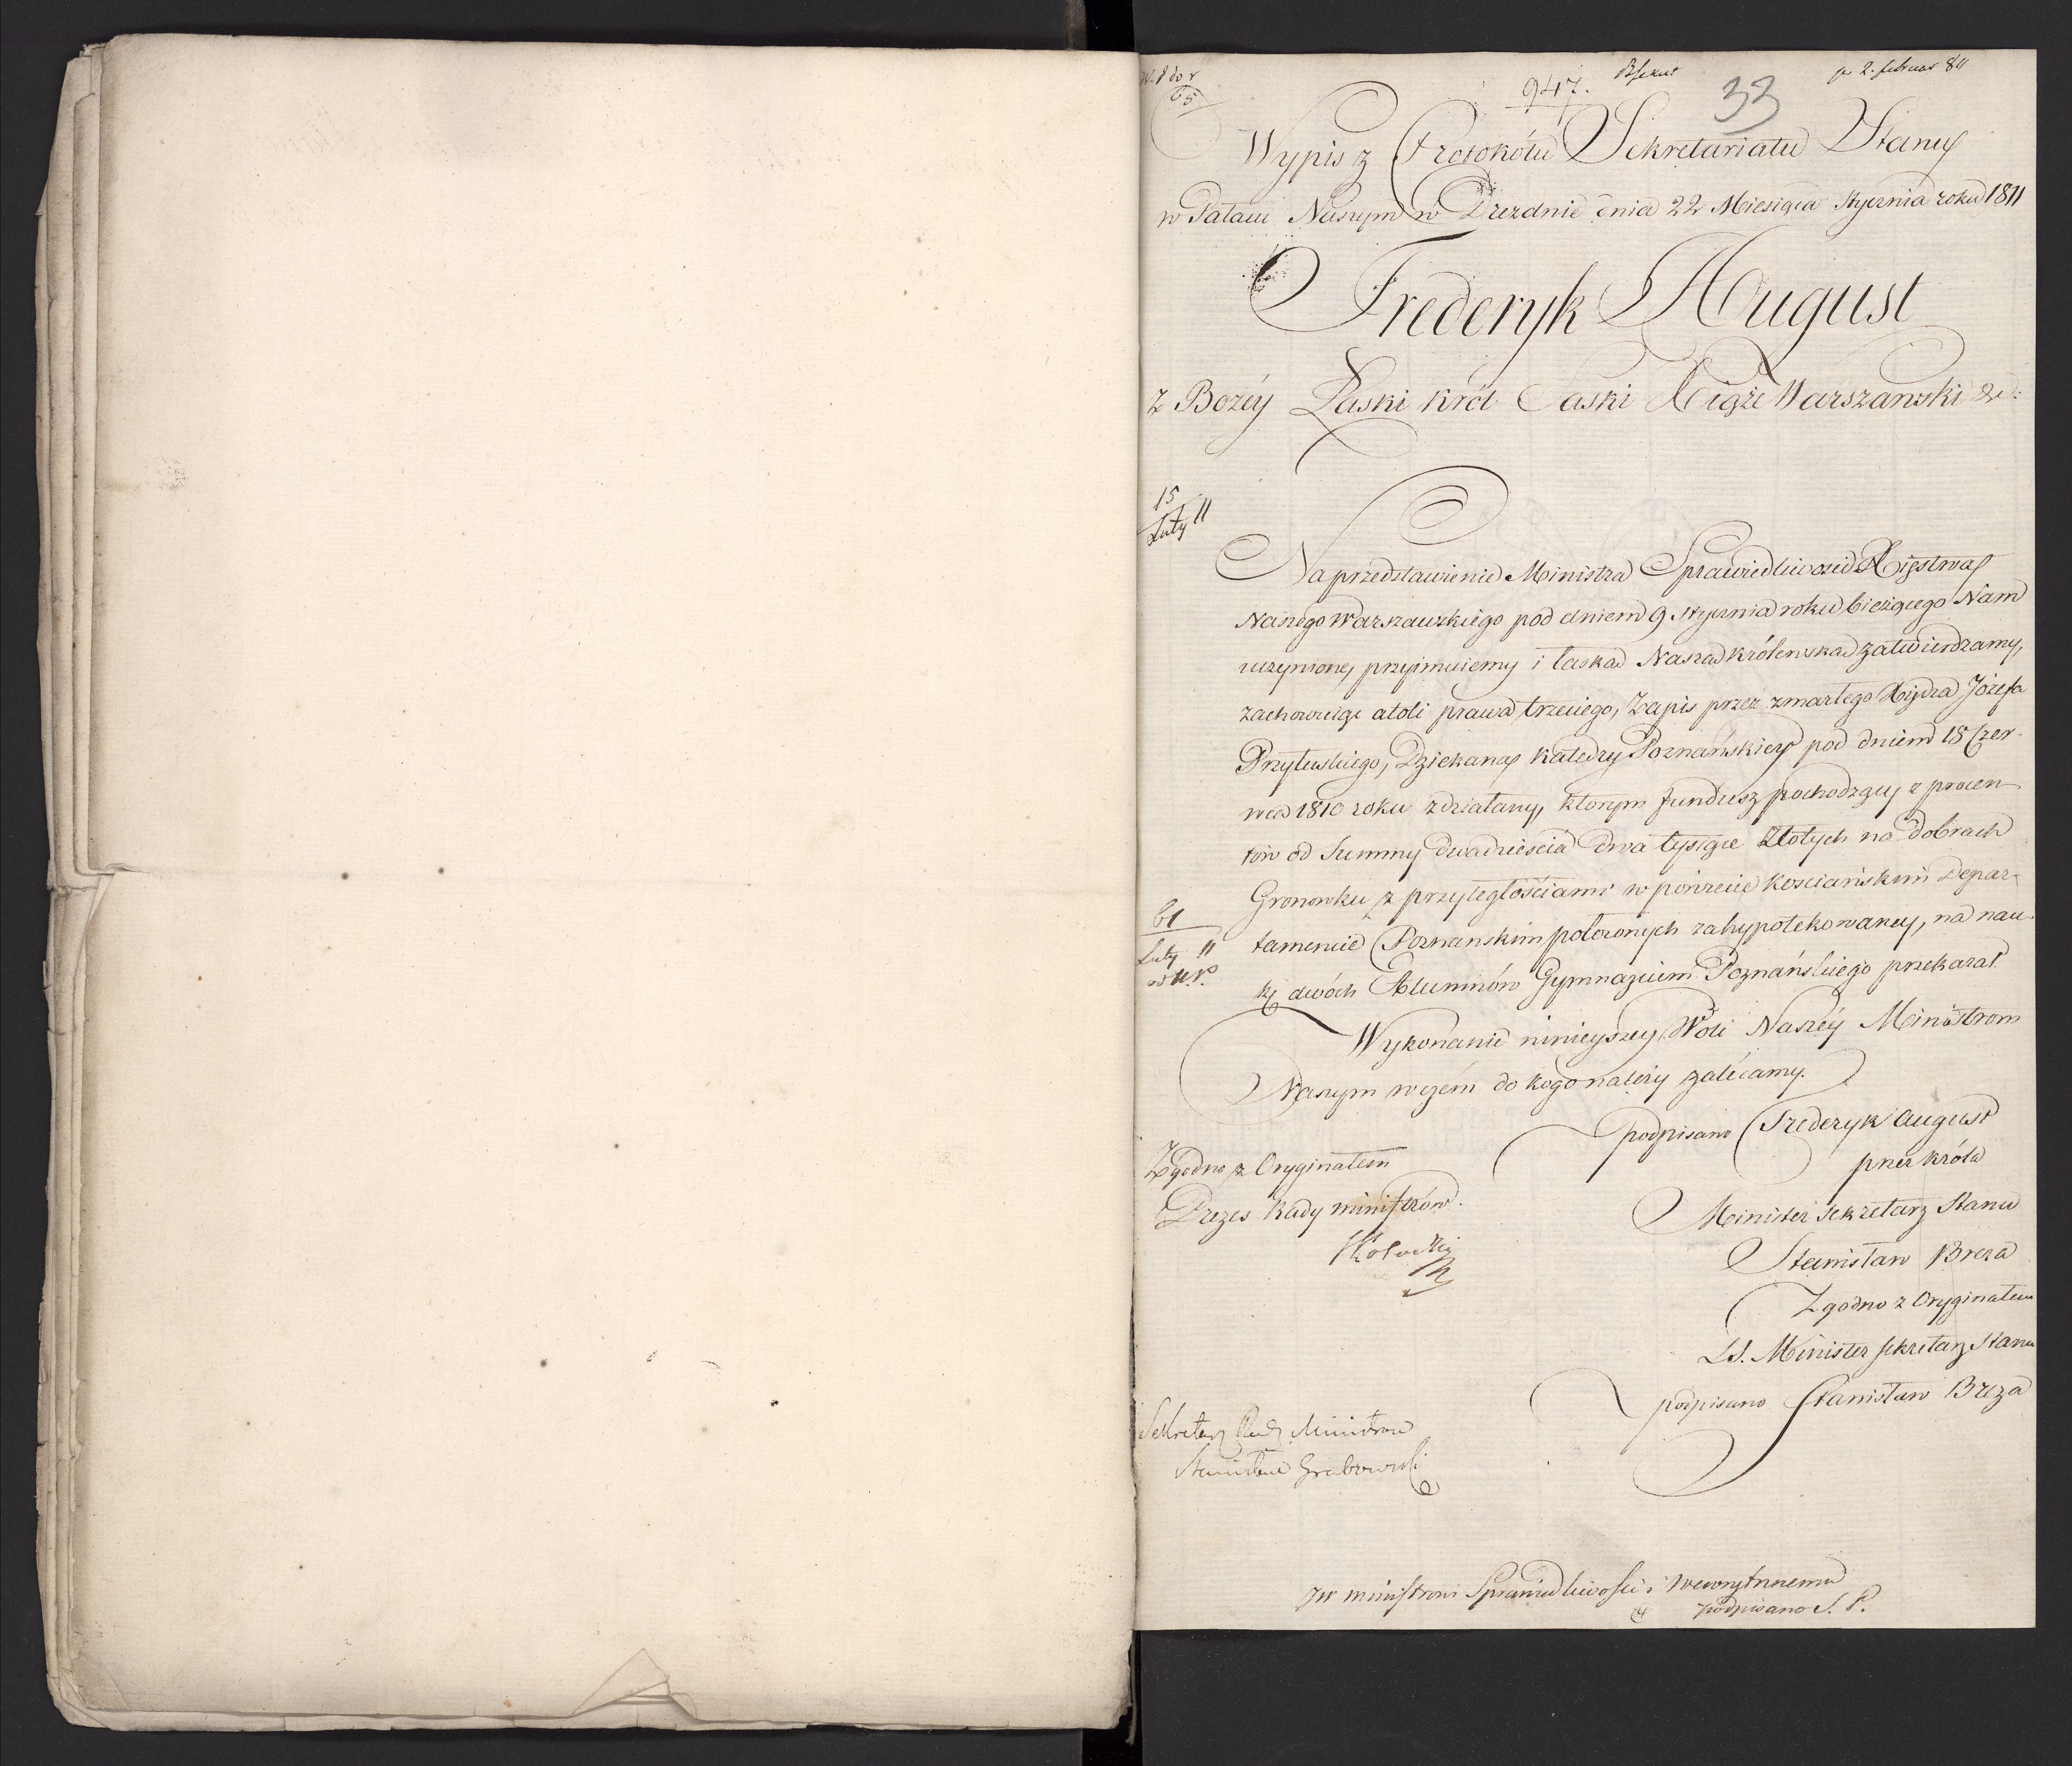 947.
33
2. februar 811
Wypis z Protokółu Sekretariatu Stanu
w Pałacu Naszym w Dreznie dnia 22 Miesiąca Stycznia roku 1811
Frederyk August
z Bożéy Łaski Król Saski Xiąże Warszawski &c:
15
Luty 11
Na przedstawienie Ministra Sprawiedliwości Xięstwa
Naszego Warszawskiego pod dniem 9 Stycznia roku bieżącego Nam
uczynione, przyimuiemy i łaską Naszą Królewską zatwierdzamy,
zachowuiąc atoli prawa trzeciego, Zapis przez zmarłego Xiędza Józefa
Przyłuskiego, Dziekana Katedry Poznańskiey pod dniem 18 Czer-
wca 1810 roku zdziałany, którym fundusz pochodzący z procen-
tów od Summy dwadzieścia dwa tysiące Złotych na dobrach
Gronowku z przyległościami w powiecie Kościańskim Depar-
tamencie Poznanskim położonych zahypotekowaney, na nau-
kę dwóch Alumnów Gymnazium Poznańskiego przekazał.
61
Luty 11
Wykonanie ninieyszey Woli Naszéy Ministrom
Naszym w czém do kogo należy zalecamy.
podpisano Frederyk August
przez Króla
Minister Sekretarz Stanu
Stanisław Breza
Zgodno z Oryginałem
LS. Minister Sekretarz Stanu
podpisano Stanisław Breza
Zgodno z Oryginałem
Prezes Rady Ministrów.
Sekretarz Rady Ministrów
Stanisław Grabowski
JW Ministrowi Sprawiedliwości i Wewnętrznemu
podpisano S. P.